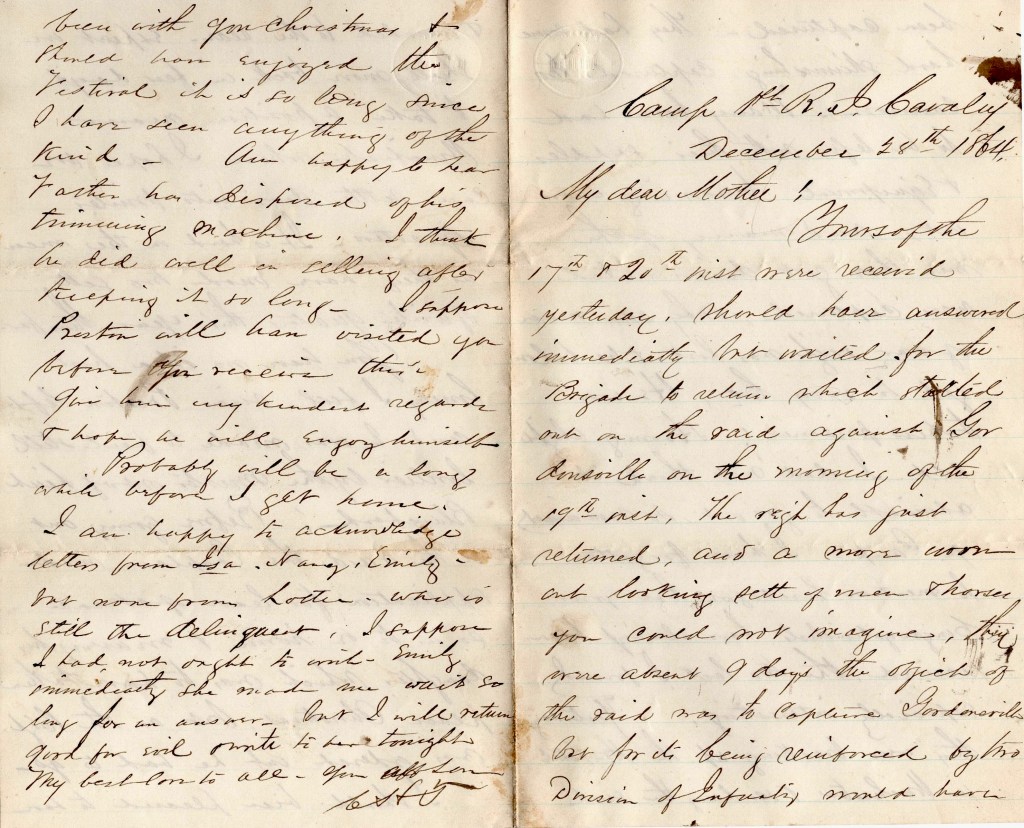 Camp 1st R. I. Cavalry
December 28th 1864.
My dear Mother!
Yours of the
17th & 20th inst were receivd
yesterday. Should have answered
immediatly but waited for the
Brigade to return which started
out on the raid against Gor
donsville on the morning of the
19th inst. The regt has just
returned, and a more worn
out looking sett of men & horses
you could not imagine, they
were absent 9 days the object of
the raid was to capture Gordonsville
but for its being reinforced by two
Division of Infantry would have
been with you Christmas &
should have enjoyed the
Festival it is so long since
I have seen anything of the
kind - Am happy to hear
Father has disposed of his
trimming machine. I think
he did well in selling after
keeping it so long - I suppose
Preston will have visited you
before you receive this.
Give him my kindest regards
& hope he will enjoy himself
Probably will be a long
while before I get home.
I am happy to acknowledge
letters from Isa. Nancy, Emily -
but none from Lottie. who is
still the delinquent. I suppose
I had not ought to write Emily
immediatly she made me wait so
long for an answer - but I will return
good for evil & write to her tonight
My best love to all - Your aff son